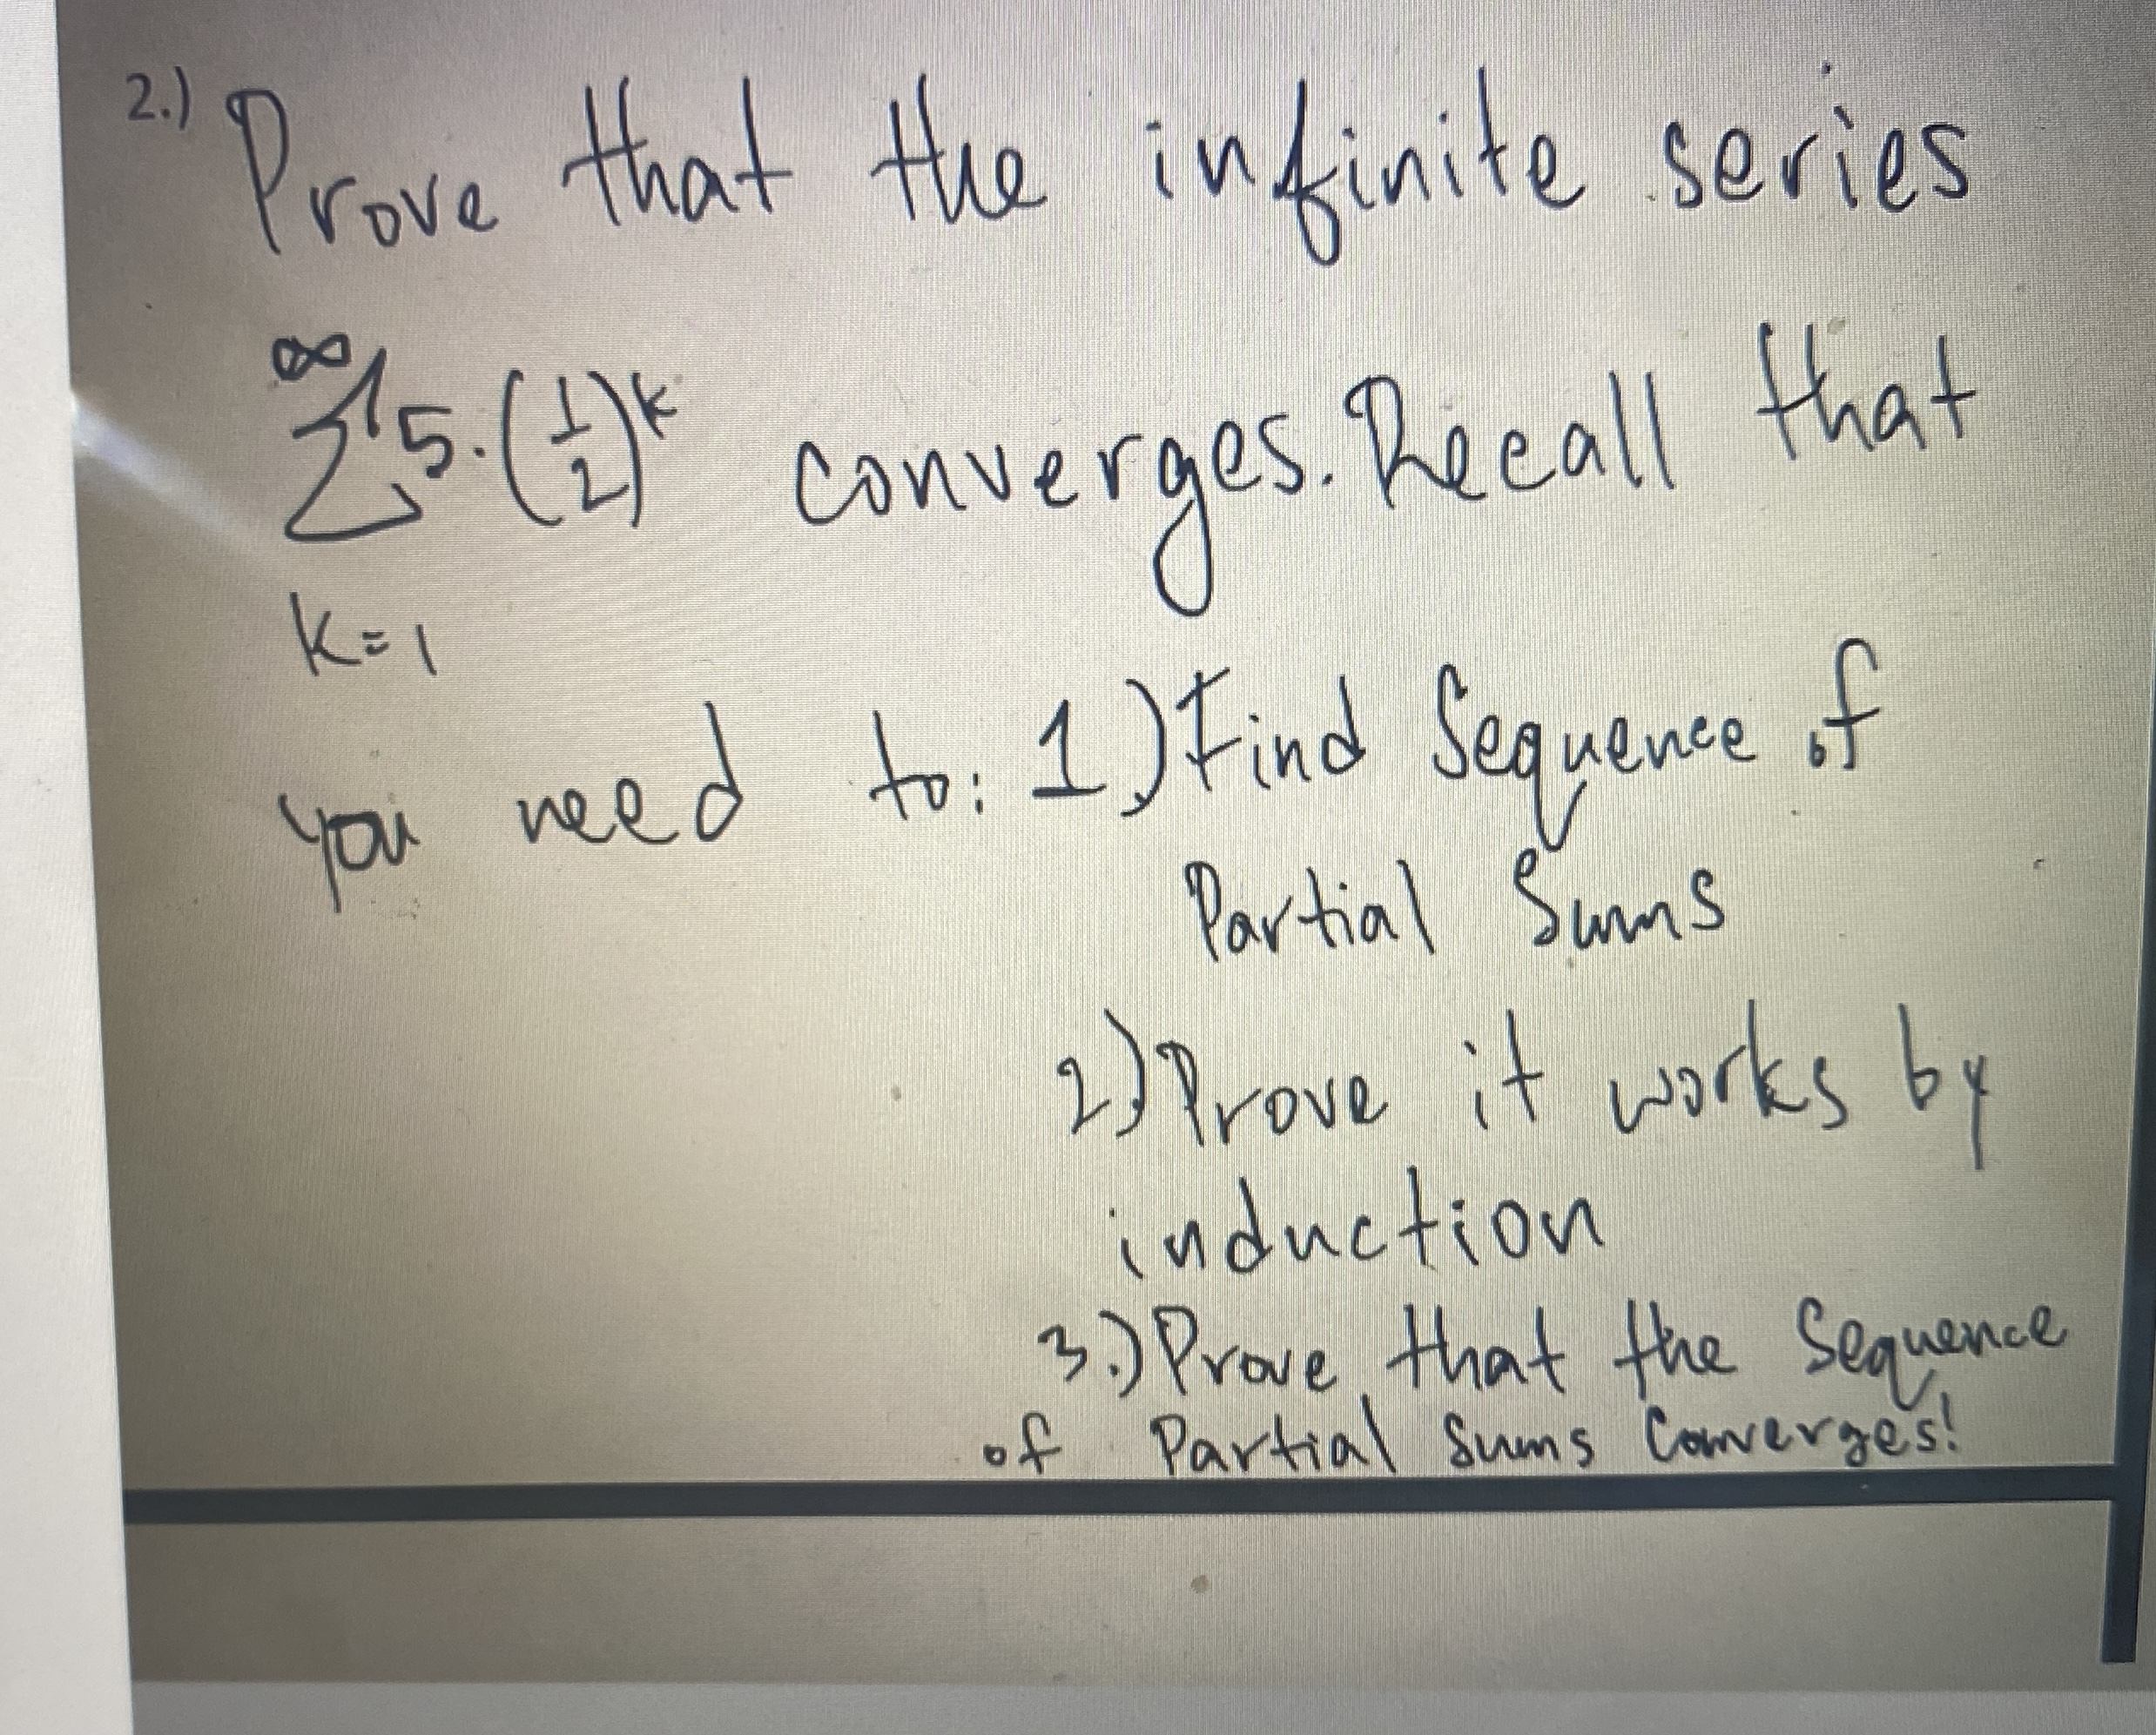 2.) Prove that the infinite series
∞
∑ 5·(1/2)^k converges. Recall that
k=1
you need to: 1.) Find Sequence of
Partial Sums
2.) Prove it works by
induction
3.) Prove that the Sequence
of Partial Sums Converges!